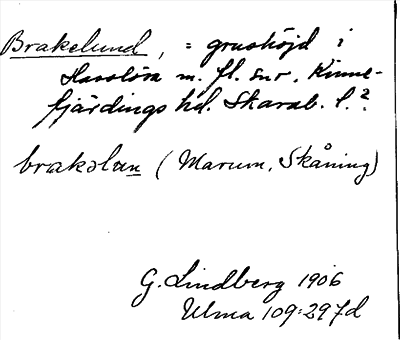 Brakelund, = grushöjd i
Hasslösa m. fl. snr, Kinne-
fjärdings hd. Skarab. l.?
brakəlan (Marum, Skåning)
G. Lindberg 1906
Ulma 109:297d